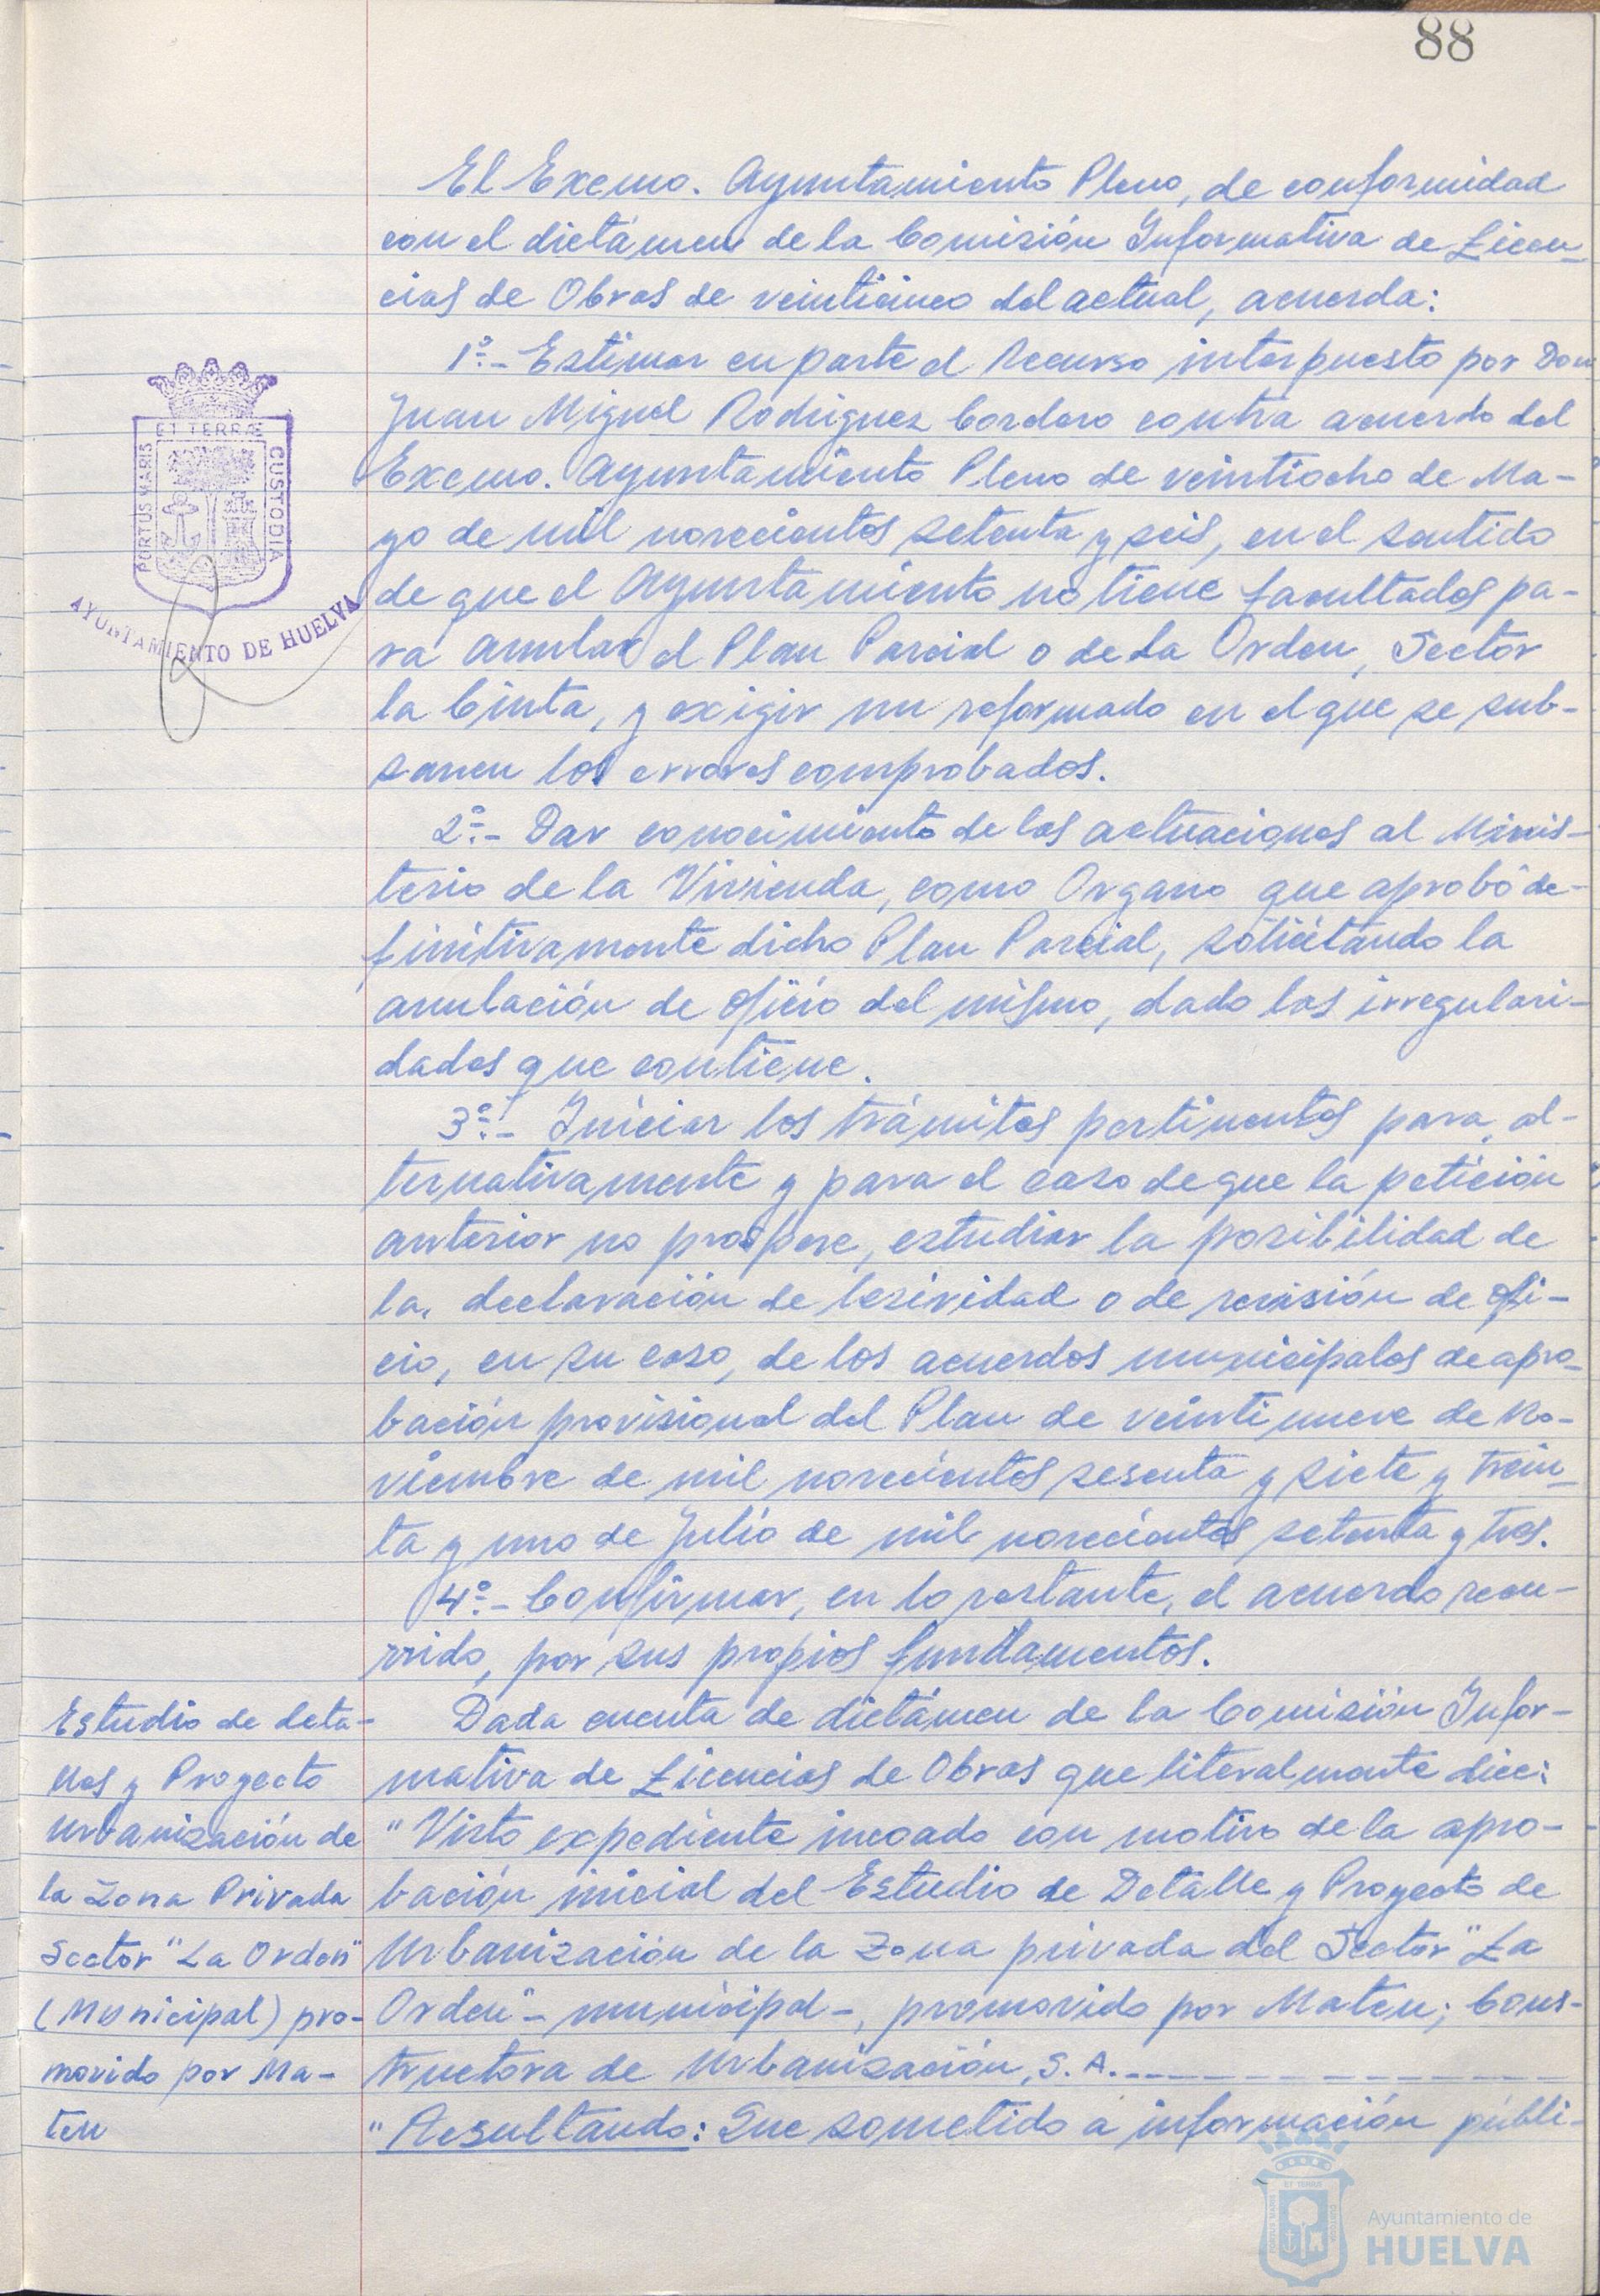 88
El Excmo. Ayuntamiento Pleno, de conformidad
con el dictámen de la Comisión Informativa de Licen-
cias de Obras de veinticinco del actual, acuerda:
1º.- Estimar en parte el recurso interpuesto por Don
Juan Miguel Rodriguez Cordero contra acuerdo del
Excmo. Ayuntamiento Pleno de veintiocho de Ma-
yo de mil novecientos setenta y seis, en el sentido
de que el Ayuntamiento no tiene facultades pa-
ra anular el Plan Parcial o de La Orden, Sector
la Cinta, y exigir un reformado en el que se sub-
sanen los errores comprobados.
2º.- Dar conocimiento de las actuaciones al Minis-
terio de la Vivienda, como Organo que aprobó de-
finitivamente dicho Plan Parcial, solicitando la
anulación de oficio del mismo, dado las irregulari-
dades que contiene.
3º.- Iniciar los trámites pertinentes para, al-
ternativamente y para el caso de que la petición
anterior no prospere, estudiar la posibilidad de
la declaración de lesividad o de revisión de ofi-
cio, en su caso, de los acuerdos municipales de apro-
bación provisional del Plan de veintinueve de No-
viembre de mil novecientos sesenta y siete y trein-
ta y uno de Julio de mil novecientos setenta y tres.
4º.- Confirmar, en lo restante, el acuerdo recu-
rrido, por sus propios fundamentos.
Estudio de deta-
lles y Proyecto
Urbanización de
la Zona Privada
Sector "La Orden"
(Municipal) pro-
movido por Ma-
teu
Dada cuenta de dictámen de la Comisión Infor-
mativa de Licencias de Obras que literalmente dice:
"Visto expediente incoado con motivo de la apro-
bación inicial del Estudio de Detalle y Proyecto de
Urbanización de la Zona privada del Sector "La
Orden"- municipal-, promovido por Mateu; Cons-
tructora de Urbanización, S.A.
"Resultando: Que sometido a información públi-
PORTUS MARIS
ET TERRÆ
CUSTODIA
AYUNTAMIENTO DE HUELVA
Ayuntamiento de
HUELVA